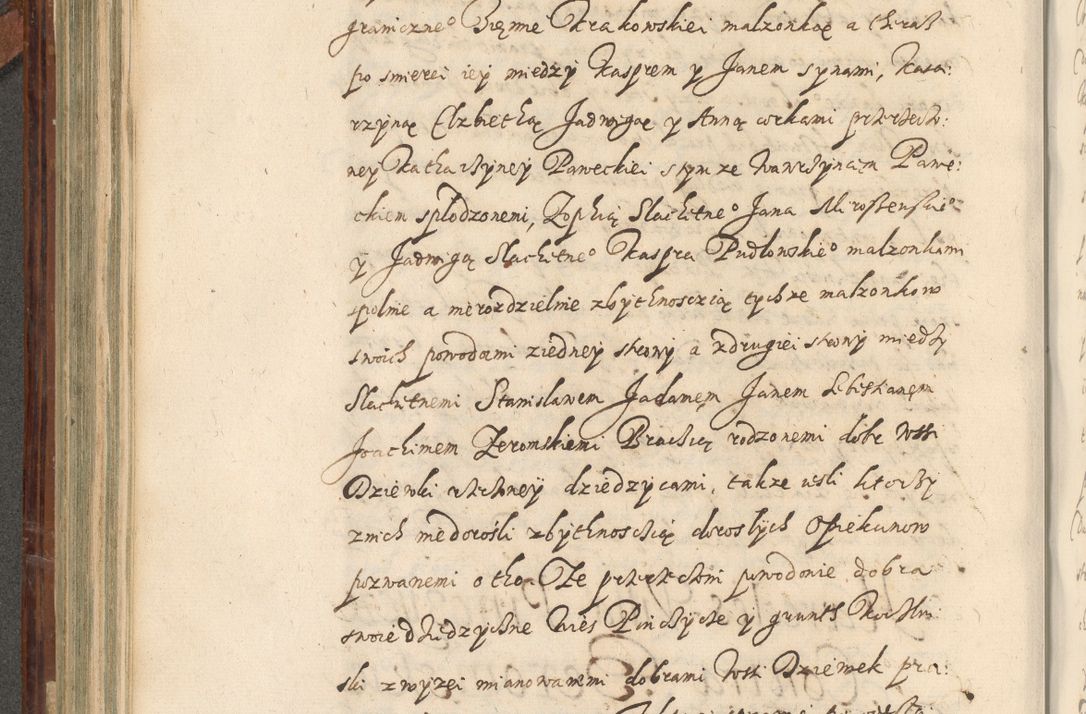 graniczne° Ziemie Krakowskiei malzonkaę a theraz
po smierci iey między Kasprem y Janem synami, Kata:
rzynaę Elzbiethaę Jadwigaę y Anną corkami przerzeczo:
ney Katharzyney Paweckiei s tym ze Wawrzyncem Pawe:
ckiem splodzonemi, Zophią Slachetne° Jana Mirostenskie°
y Jadwigą Slachetne° Kaspra Pudlowskie° malzonkami
spolnie a nierozdzielnie zbythnosczią tychze malzonkow
swoich powodami ziedney strony a zdrugiei strony między
Slachetnemi Stanislawem Jadamęm Janem Sebestyanęm
Joachimem Zeromskiemi Braczią rodzonemi dobr Wsi
Dziewki rzeczoney dziedzycami, takze iesli ktorzy
znich niedorośli zbythnosczią doroslych Opiekunow
pozwanemi o tho. Ze przerzeczoni powodowie dobra
swoie dziedzyczne Wies Pinczycze y grunth Kuczlin:
ski zwyzei mianowanemi dobrami Wsi Dziewek pra: